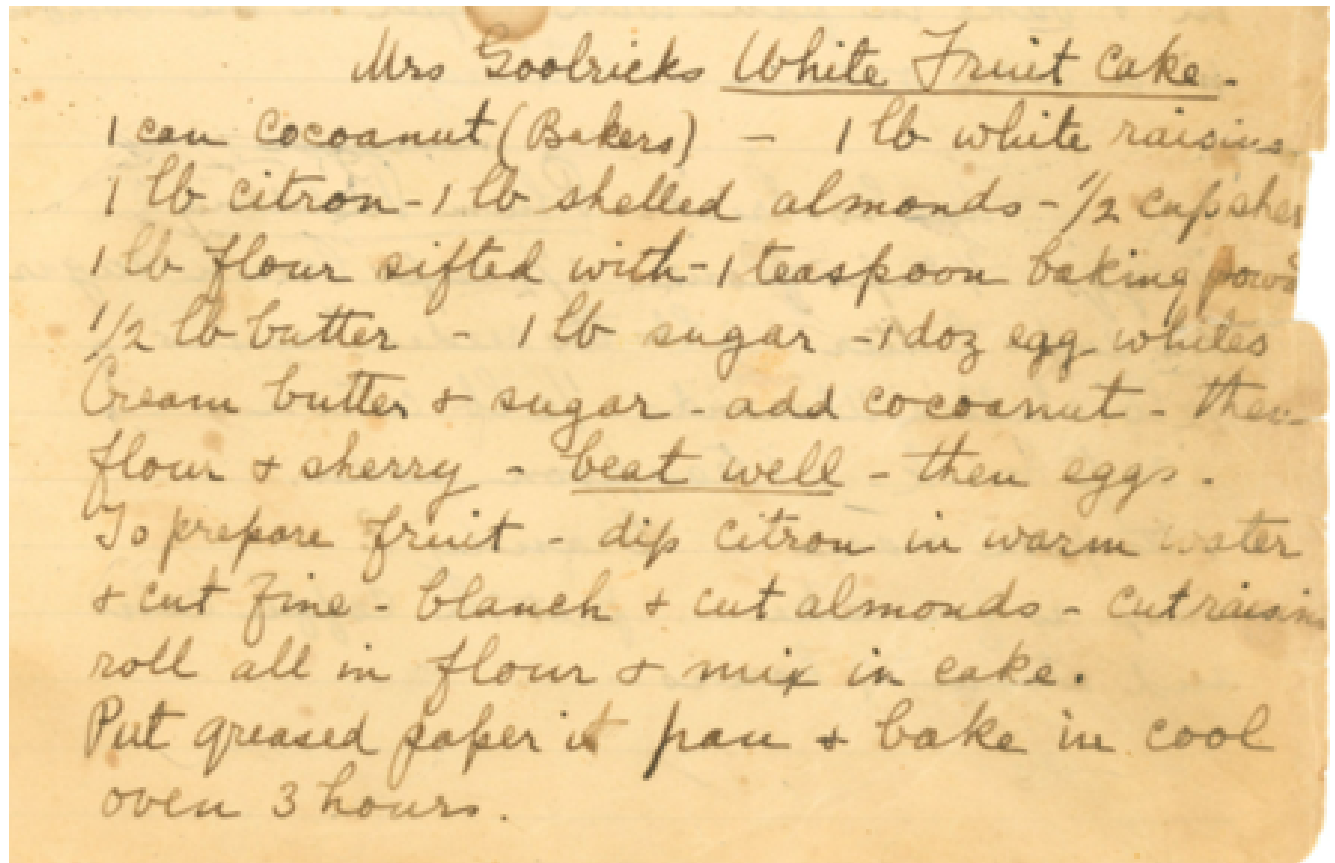 Mrs Goolricks White Fruit Cake.
1 can Cocoanut (Bakers) - 1 lb white raisins
1 lb citron - 1 lb shelled almonds - 1/2 cup sher
1 lb flour sifted with - 1 teaspoon baking powd
1/2 lb butter - 1 lb sugar - 1 doz egg whites
Cream butter + sugar - add cocoanut - then
flour + sherry - beat well - then eggs.
To prepare fruit - dip citron in warm water
+ cut fine - blanch + cut almonds - cut raisins
roll all in flour + mix in cake.
Put greased paper in pan + bake in cool
oven 3 hours.